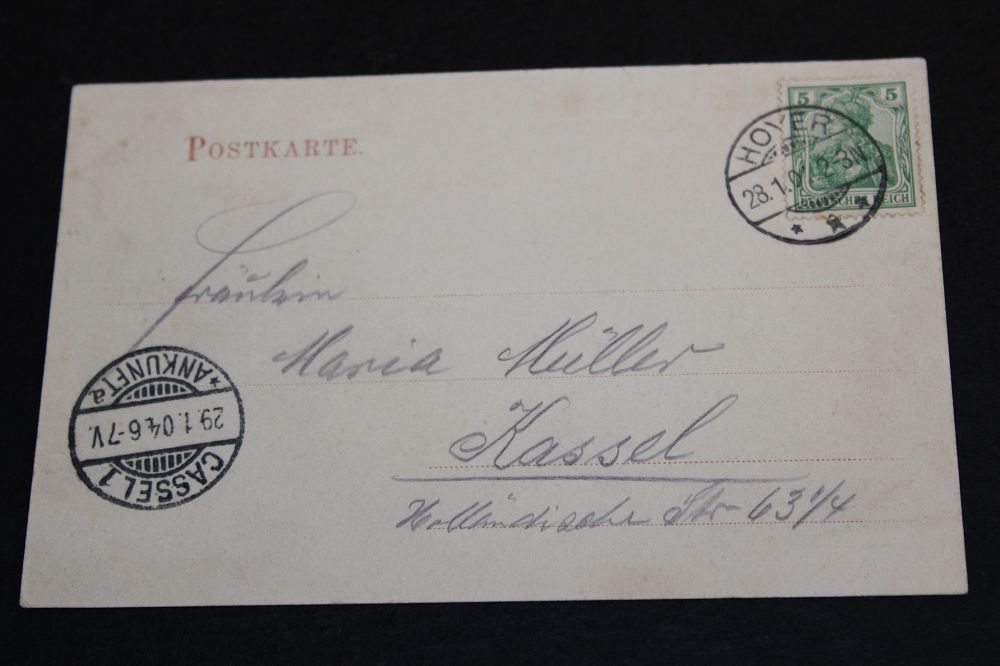 POSTKARTE.
5 5
DEUTSCHES REICH
HOYER
28.1.04 2-3N
Fräulein
Maria Müller
Kassel
Holländische Str 63 1/4
CASSEL 1
29.1.04.6-7V.
*ANKUNFT a